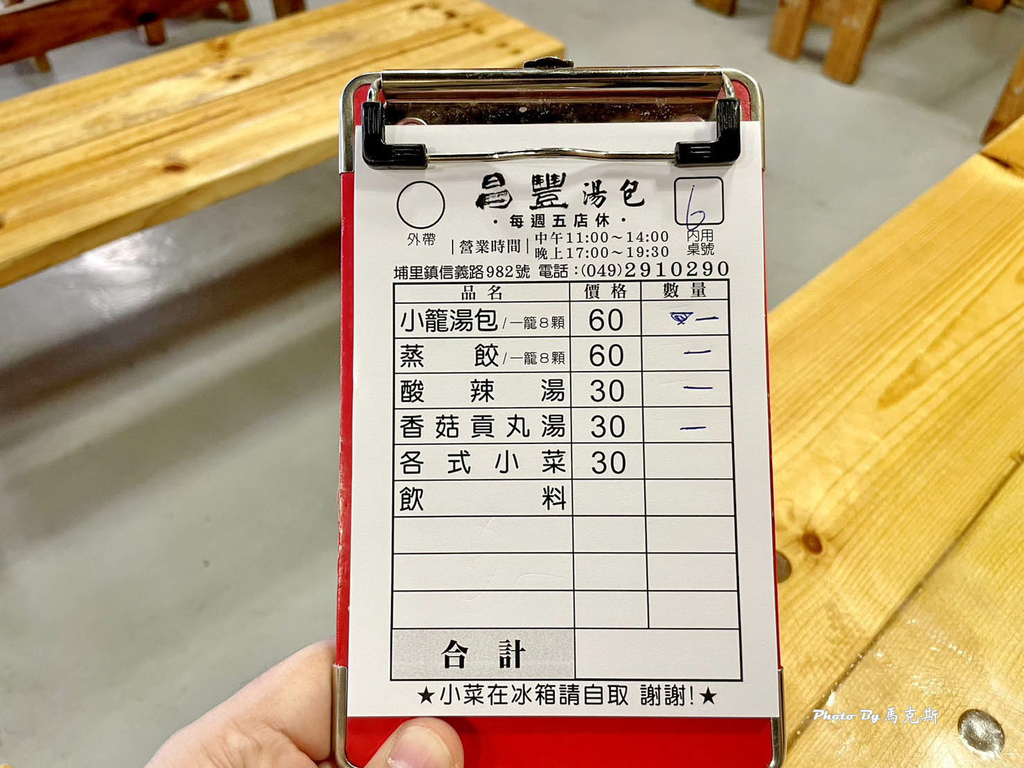 昌豐湯包
外帶
6
內用桌號
·每週五店休·
|營業時間| 中午11:00～14:00
晚上17:00～19:30
埔里鎮信義路982號 電話:(049)2910290
品名 價格 數量
小籠湯包/一籠8顆 60 一
蒸餃/一籠8顆 60 一
酸辣湯 30 一
香菇貢丸湯 30 一
各式小菜 30
飲料
合計
★小菜在冰箱請自取 謝謝!★
Photo By 馬克斯